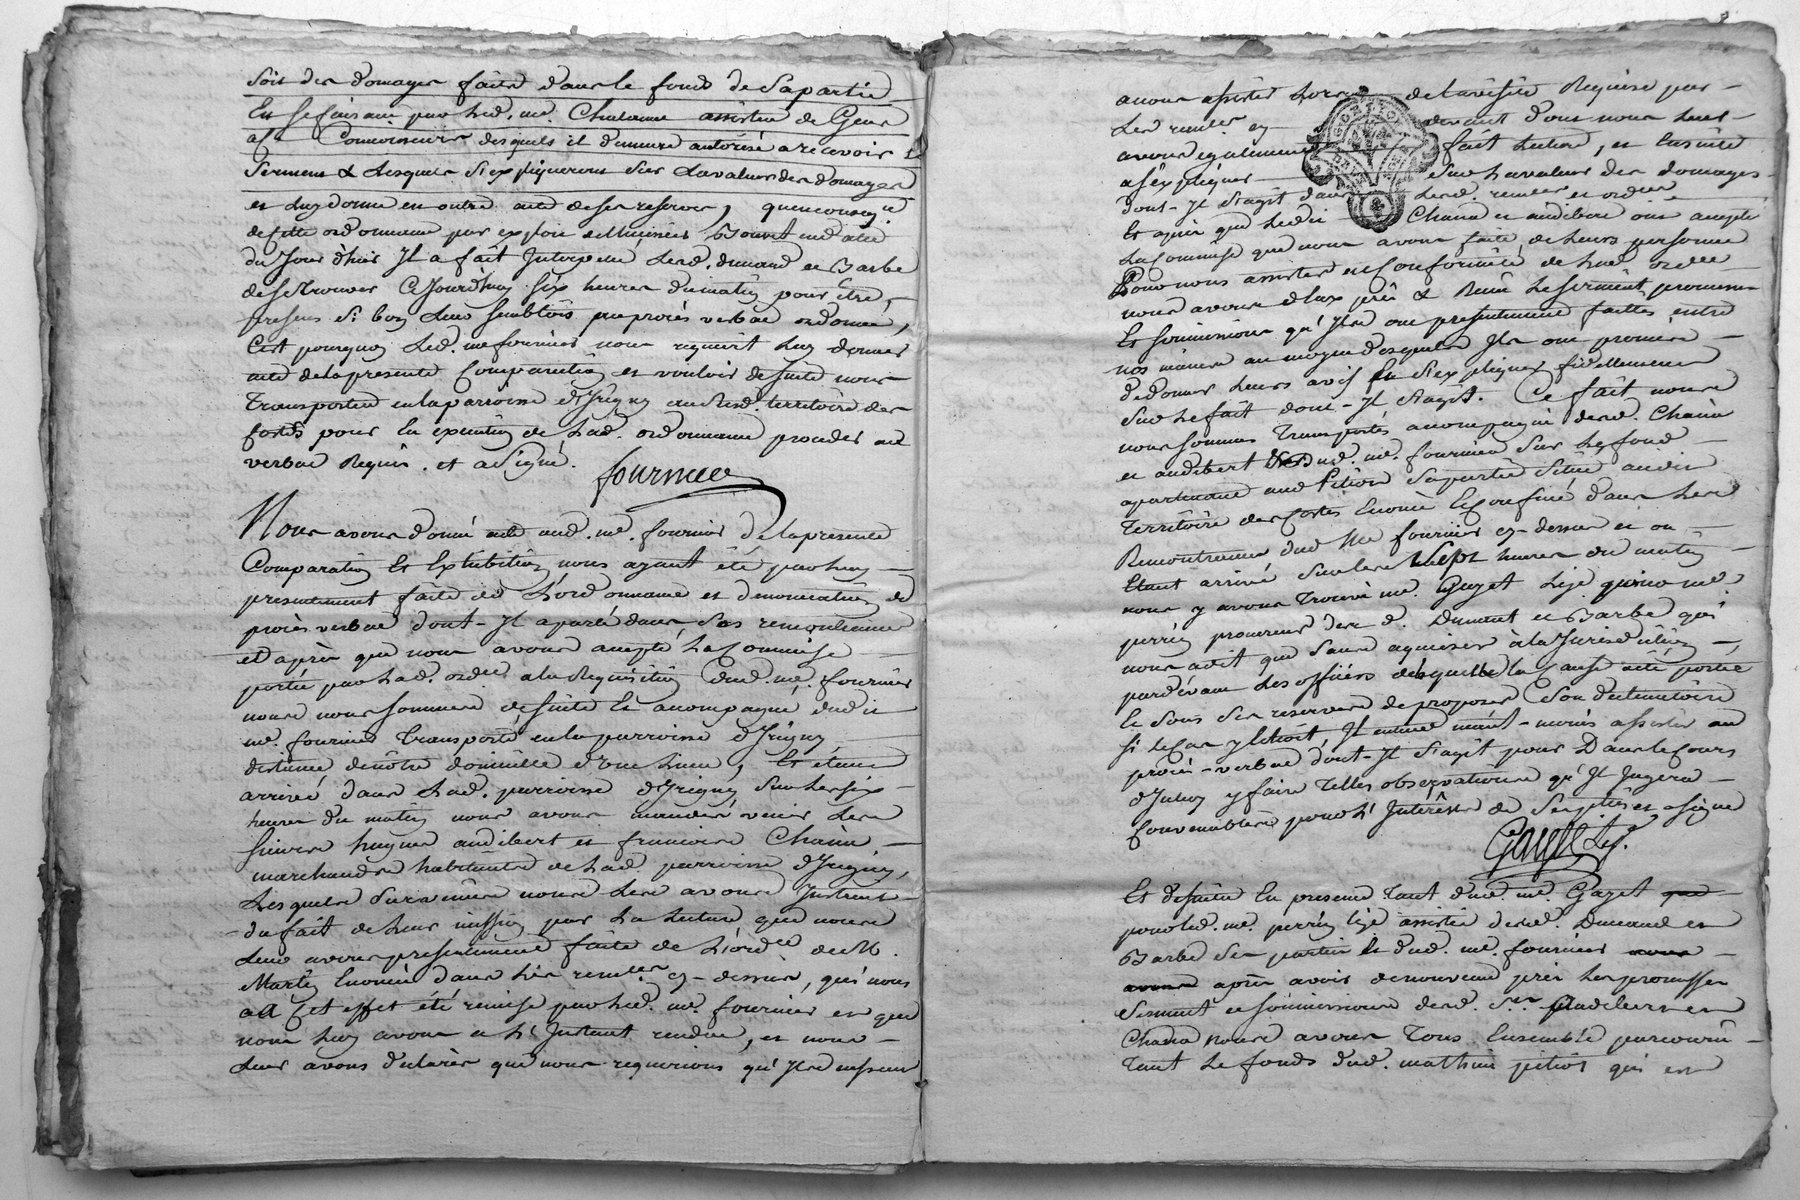 soit des domages faits dans le fond de sapartie
En se faisant par led. me. Chalanne assisttee de Gens
a Connoisseurs desquels il demeure autorisé a recevoir le
serment & Lesquels s'expliqueront sur Lavaleur des domages
et luy donne en outre acte de ses reserves, quenconseq.ce
de cette ordonnance par exploit Bouvet en date
du Jour d'hier Jl a fait Interpeller Lesd. dumand et Barbe
de se trouver Cejourd'huy six heures dumatin pour être
presens si bon leur semblois au procès verbal ordonné,
C'est pourquoy Led. me fournier nous requiert Luy donner
acte de la presente Comparution et vouloir de suite nous
Transporter en la parroisse d'Irigny au susd. territoire des
fortes pour en execution de Lad. ordonnance proceder au
verbal Requis. et a signé.
fournier
Nous avons donné acte aud. me. fournier de la presente
Comparution Et Exhibition nous ayant été par luy
presentement faite de L'ordonnance et denonciation de
procès verbal dont Jl a parlé dans sa remontrance
et après que nous avons accepté La Commise
portée par Lad. ordce a la Requisition dud. me. fournier
nous nous sommes de suite Et acompagné dudit
me. fournier Transporté en la parroisse d'Irigny
distante de nôtre domicille d'une Lieu, Et étant
arrivé dans Lad. parroisse d'Irigny sur les six
heures du matin nous avons mander venir Les
sieurs hugues audibert et francois Chania
marchands habitants de Lad. parroisse d'Irigny,
Lesquels survenus nous Les avons Instruit
du fait de leur mission par La Lecture que nous
leur avons presentement faite de L'ordce de M.
Martin Enoncée dans Les remces cy-dessus, qui nous
a a Cet effet été remise par Led. me. fournier et que
nous Luy avons a L'Instant rendue, et nous
leur avons déclarés que nous requerions qu'Jls eussent
anous assister Lors de la visite Requise par
Led remce cy devant d'ont nous leurs
avons egalement fait Lecture, et Ensuite
a s'expliquer sur La valeur des domages
dont Jl s'agit dans Lesd. remces et ordce
Et après que Lesdit Chania et audibert ont accepté
La Commise que nous avons faite de Leurs personne
Pour nous assister en Conformité de Lad ordce
nous avons d'Eux pris & Reçu Le serment, promesse
Et soumissions qu'Jls ont presentement faittes entre
nos mains au moyen desquelles Jls ont promis
de donner Leurs avis Et s'expliquer fidellement
sur Le fait dont Jl s'agit. Ce fait nous
nous sommes Transportés acompagné desd. Chania
et audibert & Dud. me. fournier sur Le fond
apartenant aud Pitiot sapartie situé audit
Territoire des fortes Enoncé Et Confiné dans Les
Remontrances dud Me fournier cy-dessus et ou
Etant arrivé sur les sept heures du matin
nous y avons Trouvé me. Gayet Lejé pour me.
perrin procureur desd. Dumant et Barbe qui
nous a dit que sans aquiesser à la Jurisdiction
pardevant Les officiers desquelle la Cause a été portée
Et sous Ses reserves de proposer son declinatoire
si Le Cas y Echoit, Jl entend néant-moins assister au
procès-verbal dont Jl s'agit pour Dans Le Cours
d'Iceluy y faire Telles observations qu'Jl Jugera
Convenables pour L'Interêtst de Ses pties et a signé
Gayet Lej.
Et de suite En presence tant dud. me. Gayet
pour led. me. perrin lejé assisté desd. Dumand et
Barbe ses parties Et dud. me. fournier nous
avons après avoir denouveau pris Les promesse
serment et soumissions desd. srs audibert et
Chania nous avons Tous Ensemble parcouru
Tant Le fonds dud. mathieu pitiot qui est